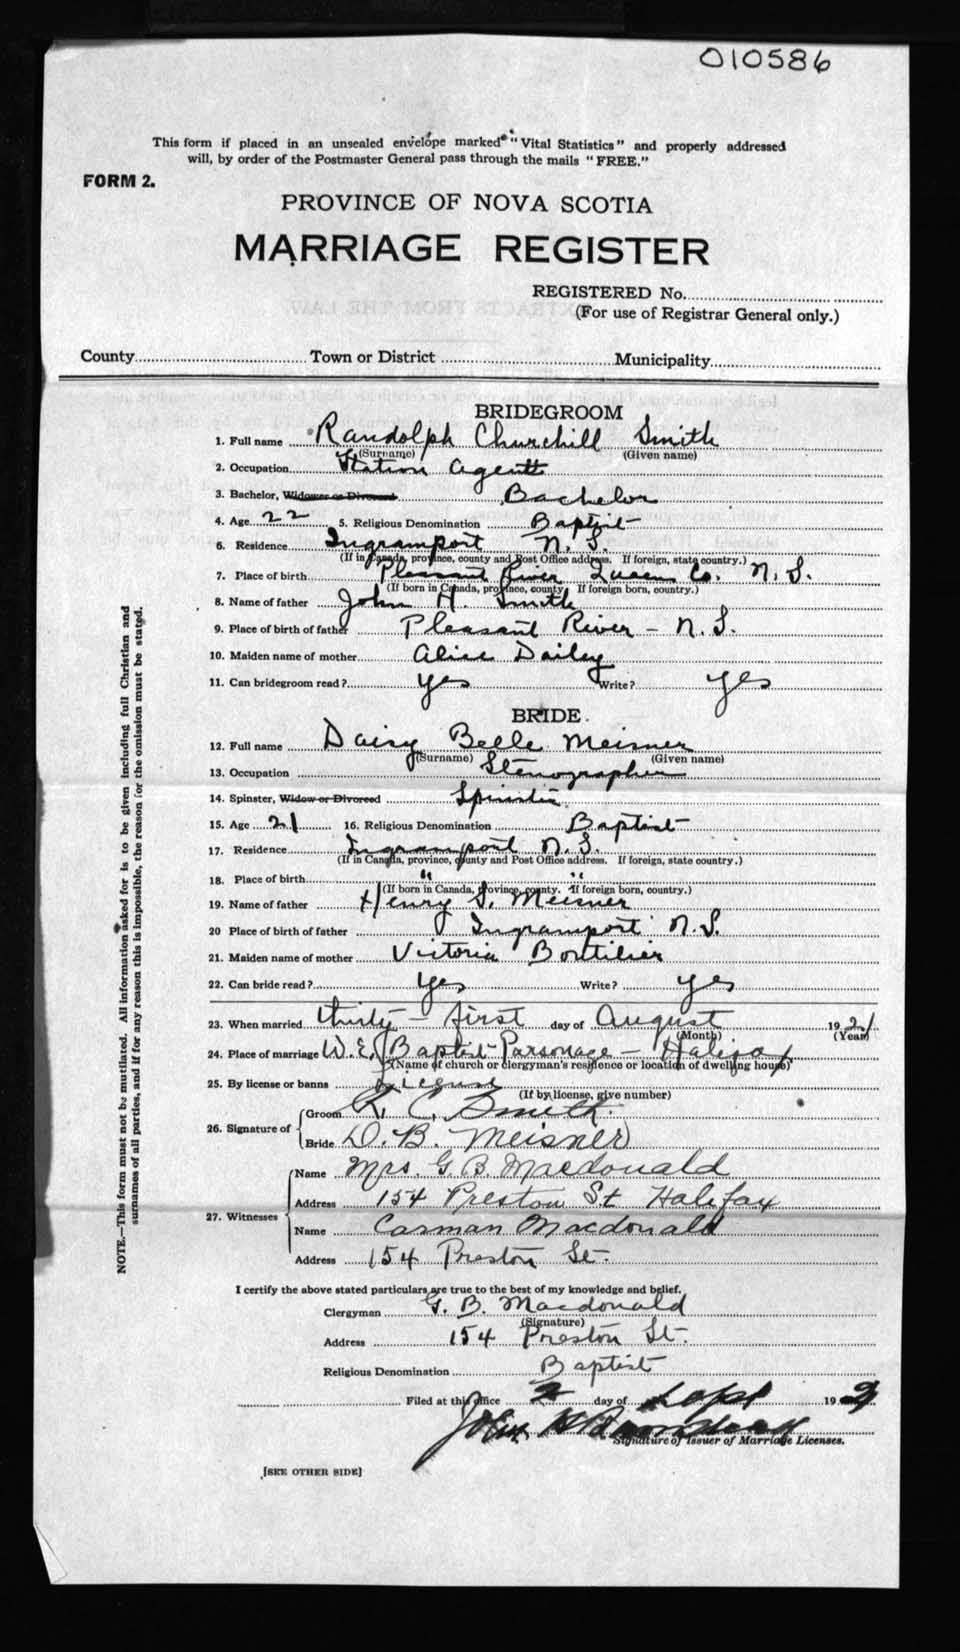 010586
This form if placed in an unsealed envelope marked "Vital Statistics" and properly addressed
will, by order of the Postmaster General pass through the mails "FREE."
FORM 2.
PROVINCE OF NOVA SCOTIA
MARRIAGE REGISTER
REGISTERED No.
(For use of Registrar General only.)
County Town or District Municipality
BRIDEGROOM
1. Full name Randolph Churchill Smith
(Surname) (Given name)
2. Occupation Station Agent
3. Bachelor, Widower or Divorced Bachelor
4. Age 22 5. Religious Denomination Baptist
6. Residence Ingramport N. S.
(If in Canada, province, county and Post Office address. If foreign, state country.)
7. Place of birth Pleasant River Queens Co. N. S.
(If born in Canada, province, county If foreign born, country.)
8. Name of father John H. Smith
9. Place of birth of father Pleasant River - N. S.
10. Maiden name of mother Alice Dailey
11. Can bridegroom read? yes Write? yes
BRIDE.
12. Full name Daisy Belle Meisner
(Surname) (Given name)
13. Occupation Stenographer
14. Spinster, Widow or Divorced Spinster
15. Age 21 16. Religious Denomination Baptist
17. Residence Ingramport N. S.
(If in Canada, province, county and Post Office address. If foreign, state country.)
18. Place of birth " "
(If born in Canada, province, county. If foreign born, country.)
19. Name of father Henry S. Meisner
20 Place of birth of father Ingramport N. S.
21. Maiden name of mother Victoria Boutilier
22. Can bride read? yes Write? yes
23. When married thirty-first day of August 1921
(Month) (Year)
24. Place of marriage W. E. Baptist Parsonage - Halifax
(Name of church or clergyman's residence or location of dwelling house)
25. By license or banns License
(If by license, give number)
26. Signature of Groom R. C. Smith.
Bride D. B. Meisner
27. Witnesses Name Mrs. G. B. Macdonald
Address 154 Preston St. Halifax
Name Carman Macdonald
Address 154 Preston St.
I certify the above stated particulars are true to the best of my knowledge and belief.
Clergyman G. B. Macdonald
(Signature)
Address 154 Preston St.
Religious Denomination Baptist
Filed at this office 2 day of Sept 192
John
Signature of Issuer of Marriage Licenses.
[SEE OTHER SIDE]
NOTE.—This form must not be mutilated. All information asked for is to be given including full Christian and
surnames of all parties, and if for any reason this is impossible, the reason for the omission must be stated.